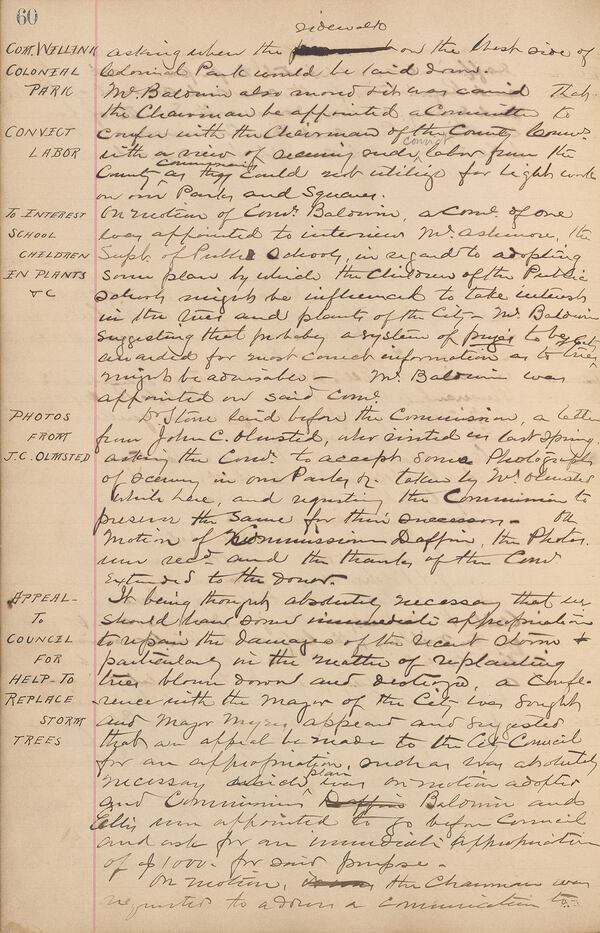 60
sidewalk
COM. WILLINK asking when the on the West side of
COLONIAL Colonial Park would be laid down.
PARK Mr. Baldwin also moved & it was carried that
the Chairman be appointed a Committee to
CONVICT confer with the Chairman of the County Comrs.
convict
LABOR with a view of securing such labor from the
community
County as they could not utilize for light work
on our Parks and Squares.
TO INTEREST On motion of Comr. Baldwin, a Com. of one
SCHOOL was appointed to interview Mr. Ashmore, the
CHILDREN Supt. of Public Schools, in regard to adopting
IN PLANTS some plan by which the Children of the Public
& C Schools might be influenced to take interest
in the trees and plants of the City - Mr. Baldwin
suggesting that probably a system of prizes to be
awarded for most correct information as to City trees
might be advisable - Mr. Baldwin was
appointed on said Com.
PHOTOS Dr Stone laid before the Commission, a letter
FROM from John C. Olmsted, who visited us last Spring
J.C. OLMSTED asking the Com. to accept some Photographs
of scenery in our Parks &c. taken by Mr. Olmsted
while here, and requesting the Commission to
preserve the same for their successors - On
motion of Commissioner Daffin, the Photos.
were recd. and the thanks of the Com.
extended to the donor.
APPEAL- It being thought absolutely necessary that we
TO should have some immediate appropriation
COUNCEL to repair the damages of the recent storm &
FOR particularly in the matter of replanting
HELP-TO trees blown down and destroyed, a Confe-
REPLACE rence with the Mayor of the City was sought
STORM and Mayor Myers appeared and suggested
TREES that an appeal be made to the City Council
for an appropriation, such as was absolutely
plan
necessary which was on motion adopted
and Commissioners Daffin Baldwin and
Ellis were appointed to go before Council
and ask for an immediate appropriation
of $1000. for said purpose.
On motion, the Chairman was
requested to address a communication to